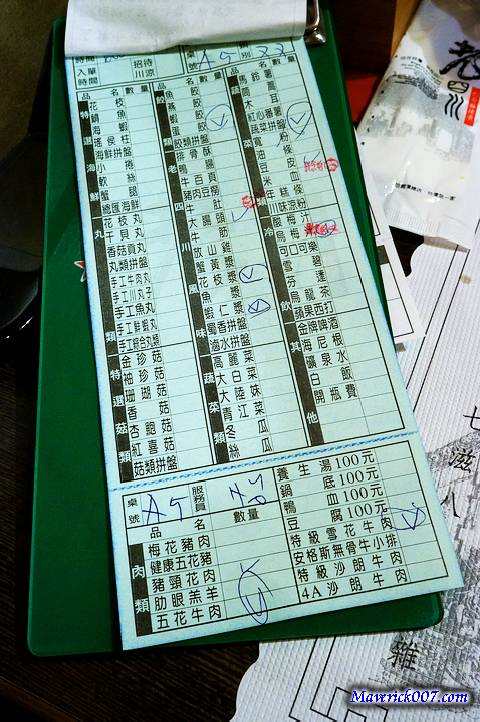 時間
入單
時間
招待
川涼
桌號 A5
品名 數量
特色海鮮
花枝
鯛魚
海蝦
小卷
軟絲
蟹腿
總匯海鮮
丸類
花枝丸
干貝丸
香菇貢丸
丸類拼盤
手工牛肉丸
手工川丸子
手工魚丸
手工花枝丸
手工鮮蝦丸
手工綜合丸類
特選菇類
金珍菇
袖珍菇
珊瑚菇
香菇
杏鮑菇
紅喜菇
菇類拼盤
品名 數量
餃類
魚餃
燕餃
蝦餃
蛋餃
餃類拼盤
老四川風味
排骨酥
鴨腸
牛百頁
豬肉豆捲
牛肚
大腸頭
牛筋
蟹黃漿
花枝漿
魚漿
蝦仁漿
蜀香水拼盤
滷水拼盤
蔬菜類
高麗菜
大白菜
大陸妹
青江菜
冬瓜
絲瓜
品名 數量
馬鈴薯
木耳
紅心蕃薯
蔬菜拼盤
寬粉
油條
豆皮
米血
年糕
川味涼粉
冷飲
酸梅汁
烏梅汁
可口可樂
雪碧
芬達
烏龍茶
蘋果西打
其他
金牌啤酒
海尼根
礦泉水
白飯
開瓶費
桌號 A5
服務員
品名 數量
肉類
梅花豬肉
健康五花豬
豬頸花肉
肋眼羔羊
五花牛肉
養生湯100元
鍋底100元
鴨血100元
豆腐100元
特級雪花牛肉
安格斯無骨牛小排
特級沙朗牛
4A沙朗牛肉
老四川
七滋八
雜
Maverick007.com